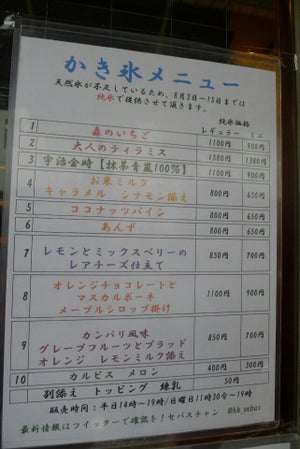 かき氷メニュー
天然氷が不足しているため、8月3日~15日までは
純氷で提供させて頂きます。
純氷価格
レギュラー ミニ
1 森のいちご 1100円 900円
2 大人のティラミス 1580円 1380円
3 宇治金時【抹茶青嵐100%】 1100円 900円
4 お米ミルク
キャラメル シナモン添え 800円 650円
5 ココナッツパイン 800円 650円
6 あんず 800円 650円
7 レモンとミックスベリーの
レアチーズ仕立て 850円 700円
8 オレンジチョコレートと
マスカルポーネ
メープルシロップ掛け 1100円 900円
9 カンパリ風味
グレープフルーツとブラッド
オレンジ レモンミルク添え 850円 700円
10 カルピス メロン 400円 300円
別添え トッピング 練乳 50円
販売時間：平日14時~19時/日曜日11時30分~19時
最新情報はツイッターで確認を！セバスチャン @kk_sebas